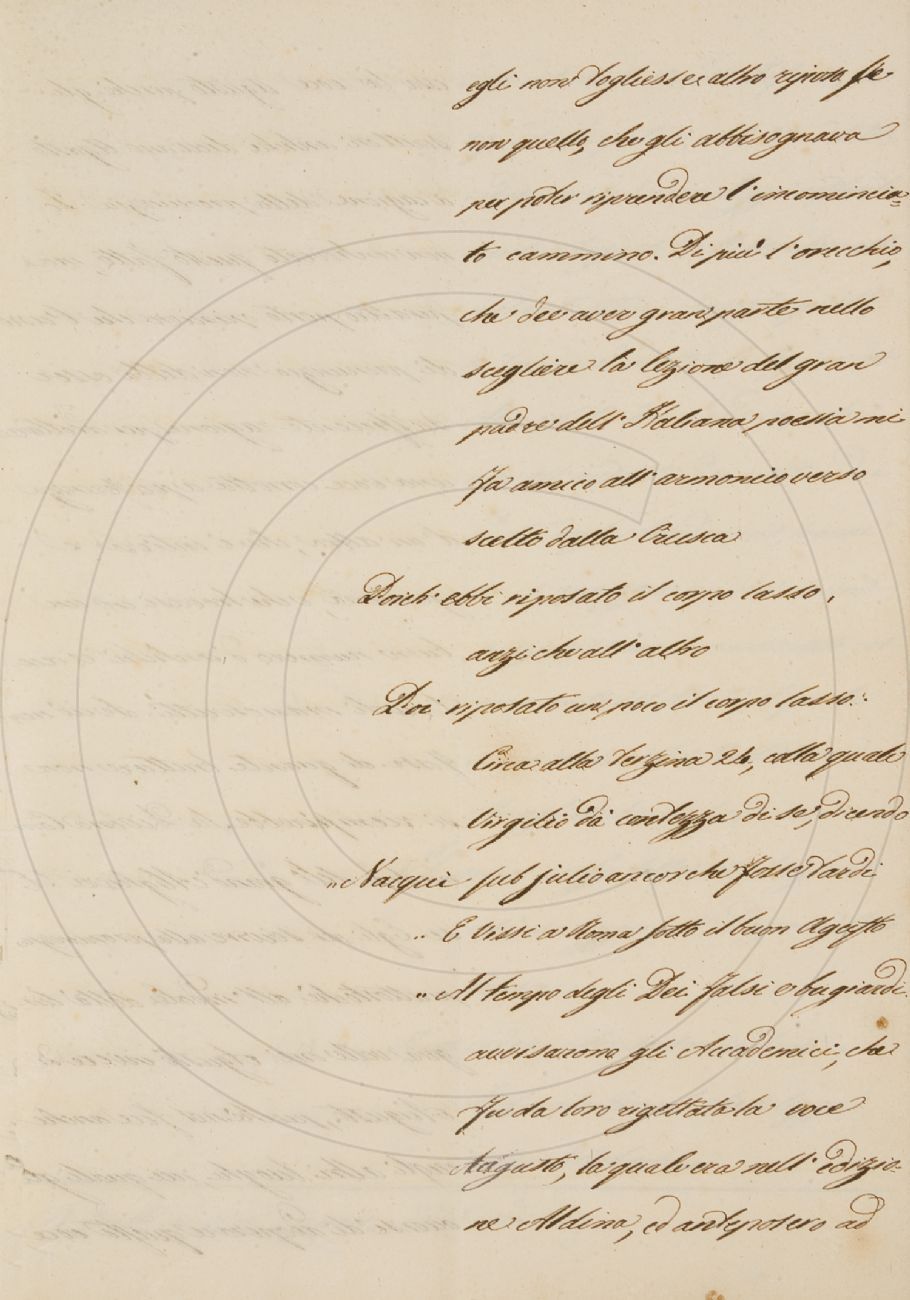 egli non togliesse altro riposo se
non quello, che gli abbisognava
per poter riprendere l'incomincia=
to cammino. Di più l'orecchio,
che dee aver gran parte nello
scegliere la lezione del gran
padre dell'Italiana poesia mi
fa amico all'armonico verso
scelto dalla Crusca
Poich'ebbi riposato il corpo lasso,
anziche all'altro
Poi riposato un poco il corpo lasso.
Circa alla terzina 24, colla quale
Virgilio dà contezza di se, dicendo
"Nacqui sub julio ancorche fosse tardi
"E vissi a Roma sotto il buon Agusto
"Al tempo degli Dei falsi e bugiardi.
avvisarono gli Accademici, che
fu da loro rigettata la voce
Augusto, la quale era nell'edizio-
ne Aldina, ed anteposero ad